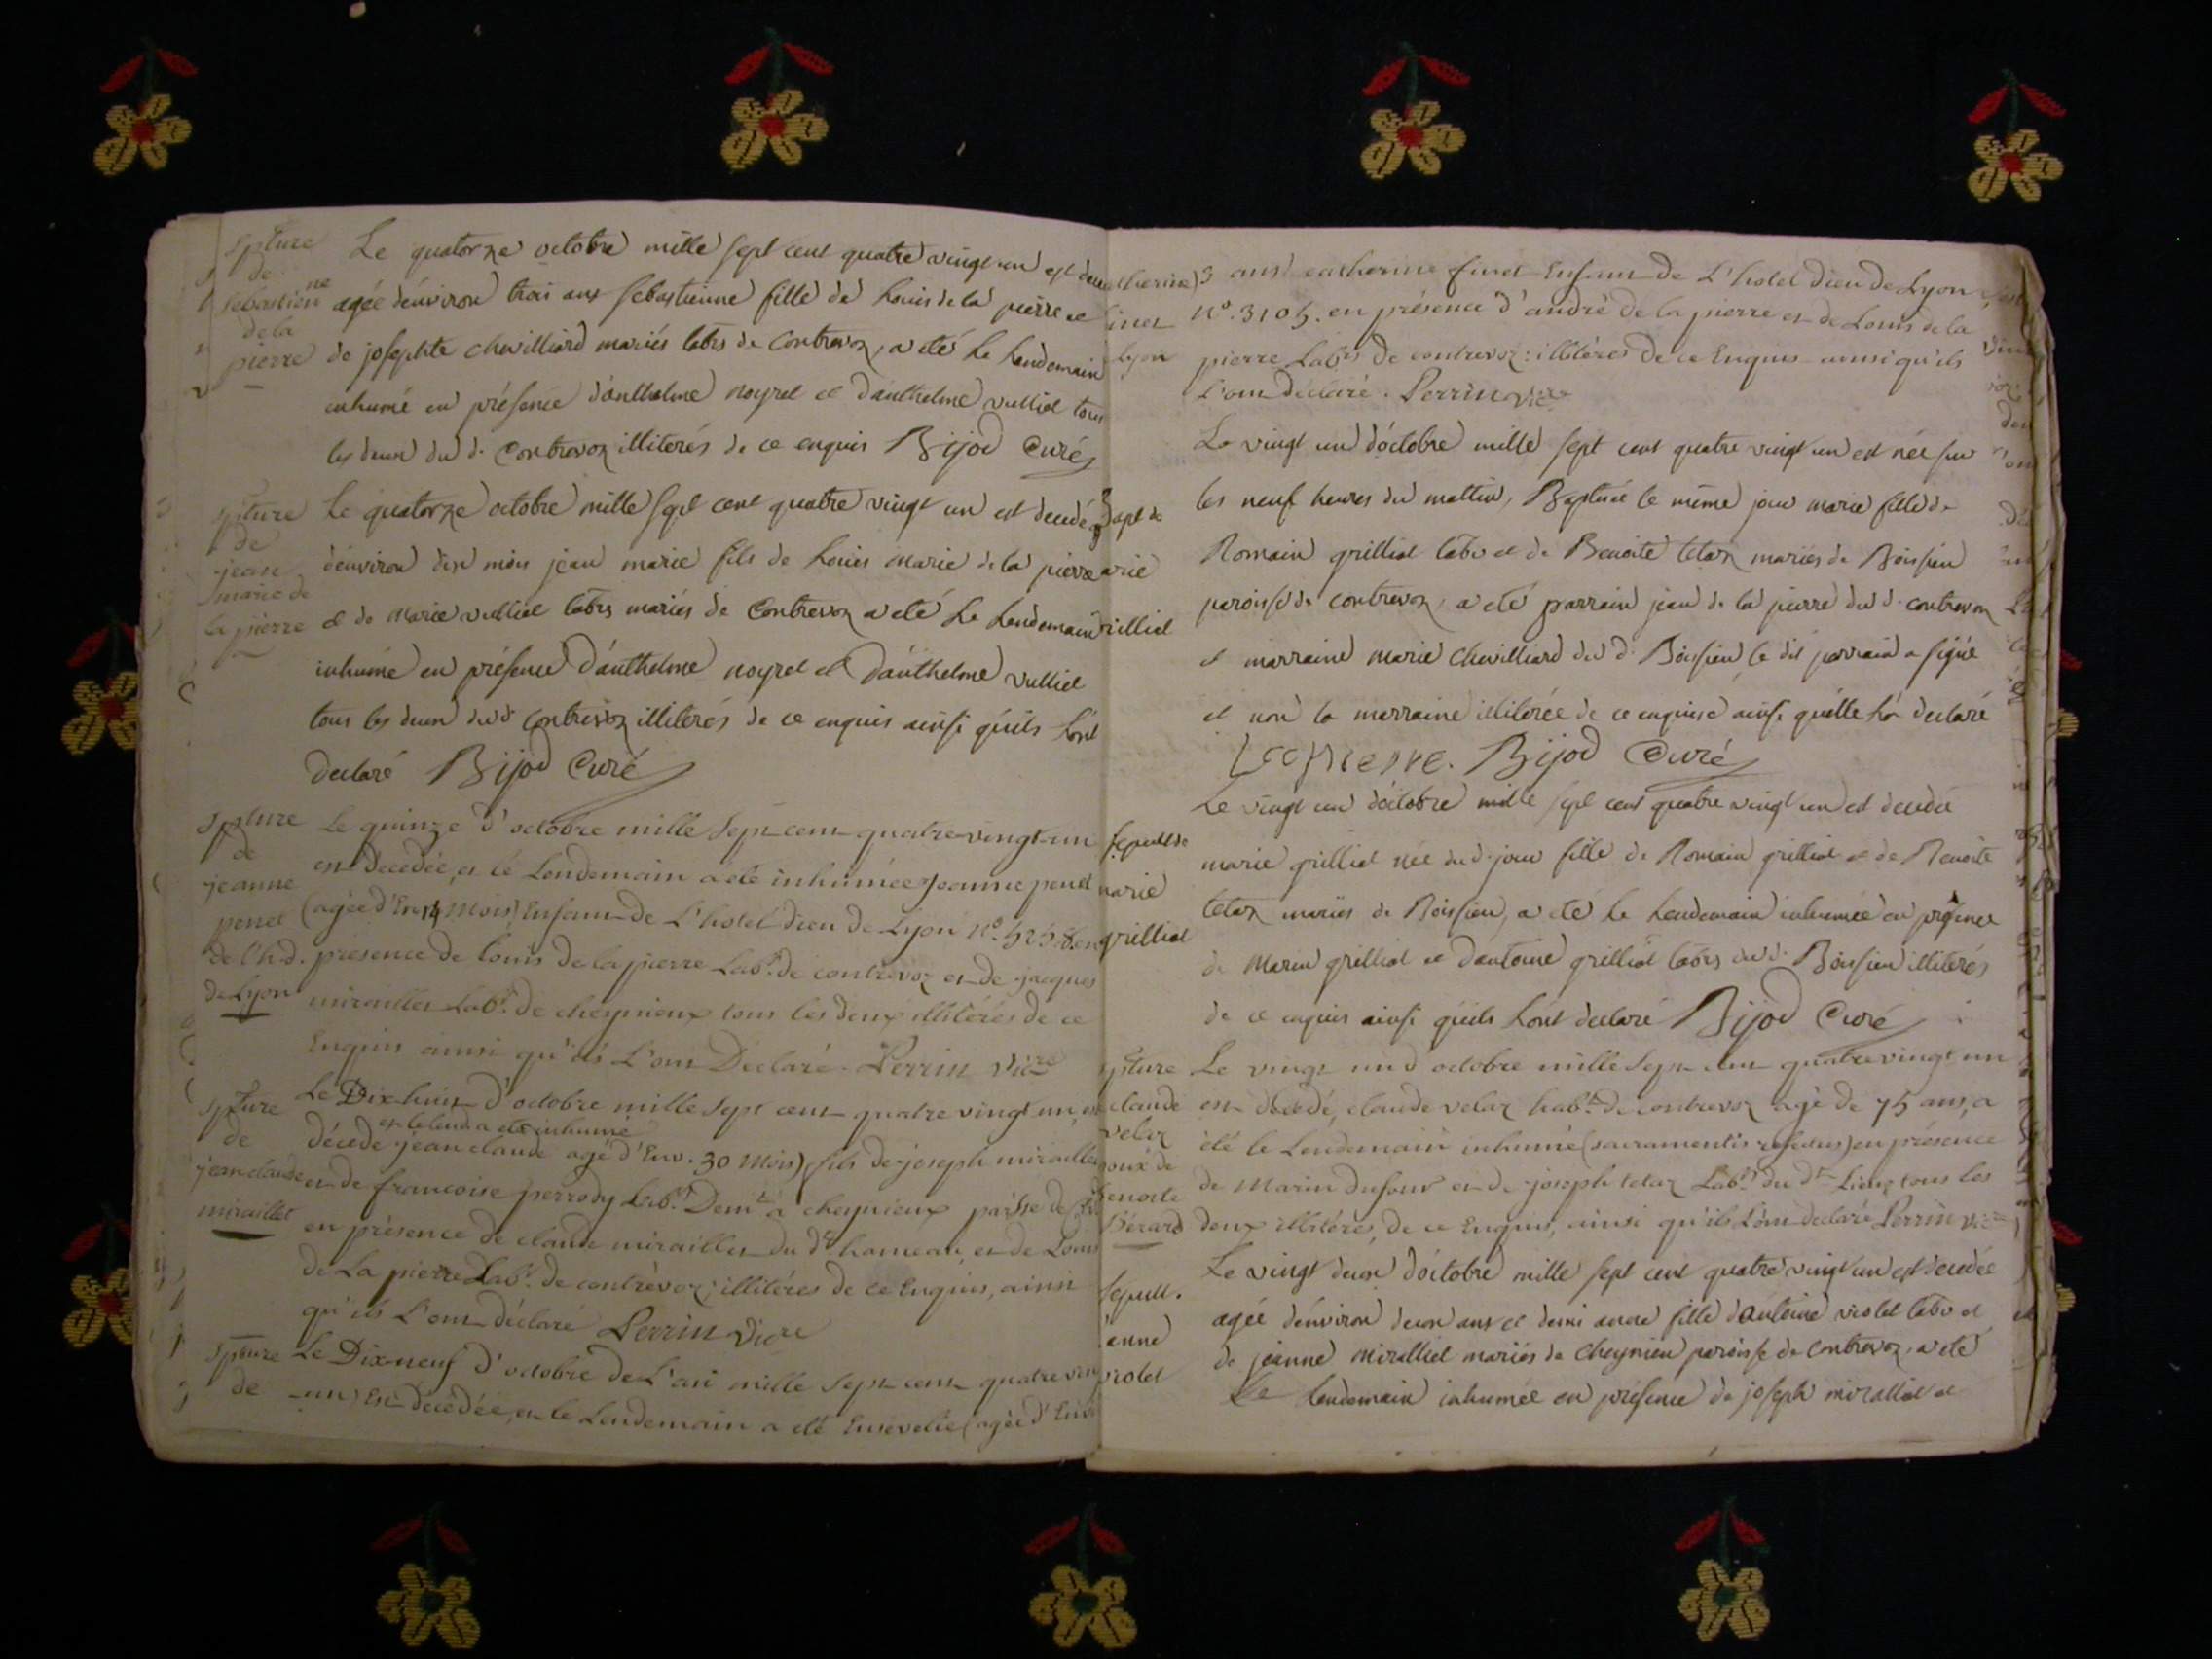 spture
de
sebastienne
de la
pierre
Le quatorze octobre mille sept cent quatre vingt un est
agée d'environ trois ans sebastienne fille de Louis de la pierre et
de josephte chevilliard mariés labrs de Contrevoz, a eté le lendemain
inhumé en présence d'anthelme noyret et d'anthelme vulliet tous
les deux du d. Contrevoz illiterés de ce enquis Bijod Curé
spture
de
jean
marie de
la pierre
Le quatorze octobre mille sept cent quatre vingt un est decedé
d'environ dix mois jean marie fils de Louis Marie de la pierre
et de Marie vulliet labrs mariés de Contrevoz a eté le lendemain
inhumé en présence d'anthelme noyret et d'anthelme vulliet
tous les deux dud. contrevoz illiterés de ce enquis ainsi qu'ils l'ont
declaré Bijod Curé
spture
de
jeanne
penet
de l'h.d.
de Lyon
Le quinze d'octobre mille sept cent quatre-vingt-un
est decedée, et le Lendemain a eté inhumée jeanne penet
(agée d'En. 14 Mois) Enfant de L'hotel dieu de Lyon N°. 5258. en
présence de louis de la pierre Labr. de contrevoz et de jacques
miraillet Labr. de cheynieux tous les deux illitérés de ce
Enquis ainsi qu'ils L'ont Déclaré. Perrin Vicre
spture
de
jean claude
miraillet
Le Dix-huit d'octobre mille sept cent quatre vingt un, est
et le lend. a eté inhumé
décédé jean claude agé d'Env. 30 Mois) fils de joseph miraillet
et de francoise perrody Labr. Demt. à cheynieux parsse de
en présence de claude miraillet du dt. hameau, et de Louis
de La pierre Labr. de contrevoz, illitéres de ce Enquis, ainsi
qu'ils L'ont déclaré Perrin Vicre
spture
de
Le Dix-neuf d'octobre de L'an mille sept cent quatre
un) Est décédée, et le Lendemain a eté Ensevelie (agée d'Env
3 ans) catherine finet Enfant de L'hotel dieu de Lyon
N°. 3105. en présence d'andré de la pierre et de Louis de la
pierre Labrs de contrevoz: illitéres de ce Enquis ainsi qu'ils
L'ont déclaré. Perrin vicre
Le vingt un d'octobre mille sept cent quatre vingt un est née sur
les neuf heures du mattin, Baptisée le même jour marie fille de
Romain grilliet labr et de Benoite tetaz mariés de Boissieu
paroisse de contrevoz, a eté parrain jean de la pierre dud. contrevoz
et marraine marie chevilliard dud. Boissieu le dit parrain a signé
et non la marraine illiterée de ce enquise ainsi qu'elle l'a declaré
Lapierre. Bijod Curé
Sepult de
marie
grilliet
Le vingt un d'octobre mille sept cent quatre vingt un est decedée
marie grilliet née dud. jour fille de Romain grilliet et de Benoite
tetaz mariés de Boissieu, a eté le lendemain inhumée en présence
de Marin grilliet et d'antoine grilliet labrs dud. Boissieu illiterés
de ce enquis ainsi qu'ils l'ont declaré Bijod Curé
spture
claude
velaz
Benoite
Bérard
Le vingt un d'octobre mille sept cent quatre vingt un
est décédé, claude velaz habt. de contrevoz agé de 75 ans, a
été le Lendemain inhumé (sacramentis refectus) en présence
de Marin dufour et de joseph tetaz Labrs du dt. Lieu, tous les
deux illitérés, de ce Enquis, ainsi qu'ils L'ont declaré Perrin vicre
Sepult.
anne
violet
Le vingt deux d'octobre mille sept cent quatre vingt un est decedée
agée d'environ deux ans et demi anne fille d'antoine violet labr et
de jeanne miralliet mariés de Cheynieu paroisse de Contrevoz, a eté
Le lendemain inhumée en présence de joseph miralliet et